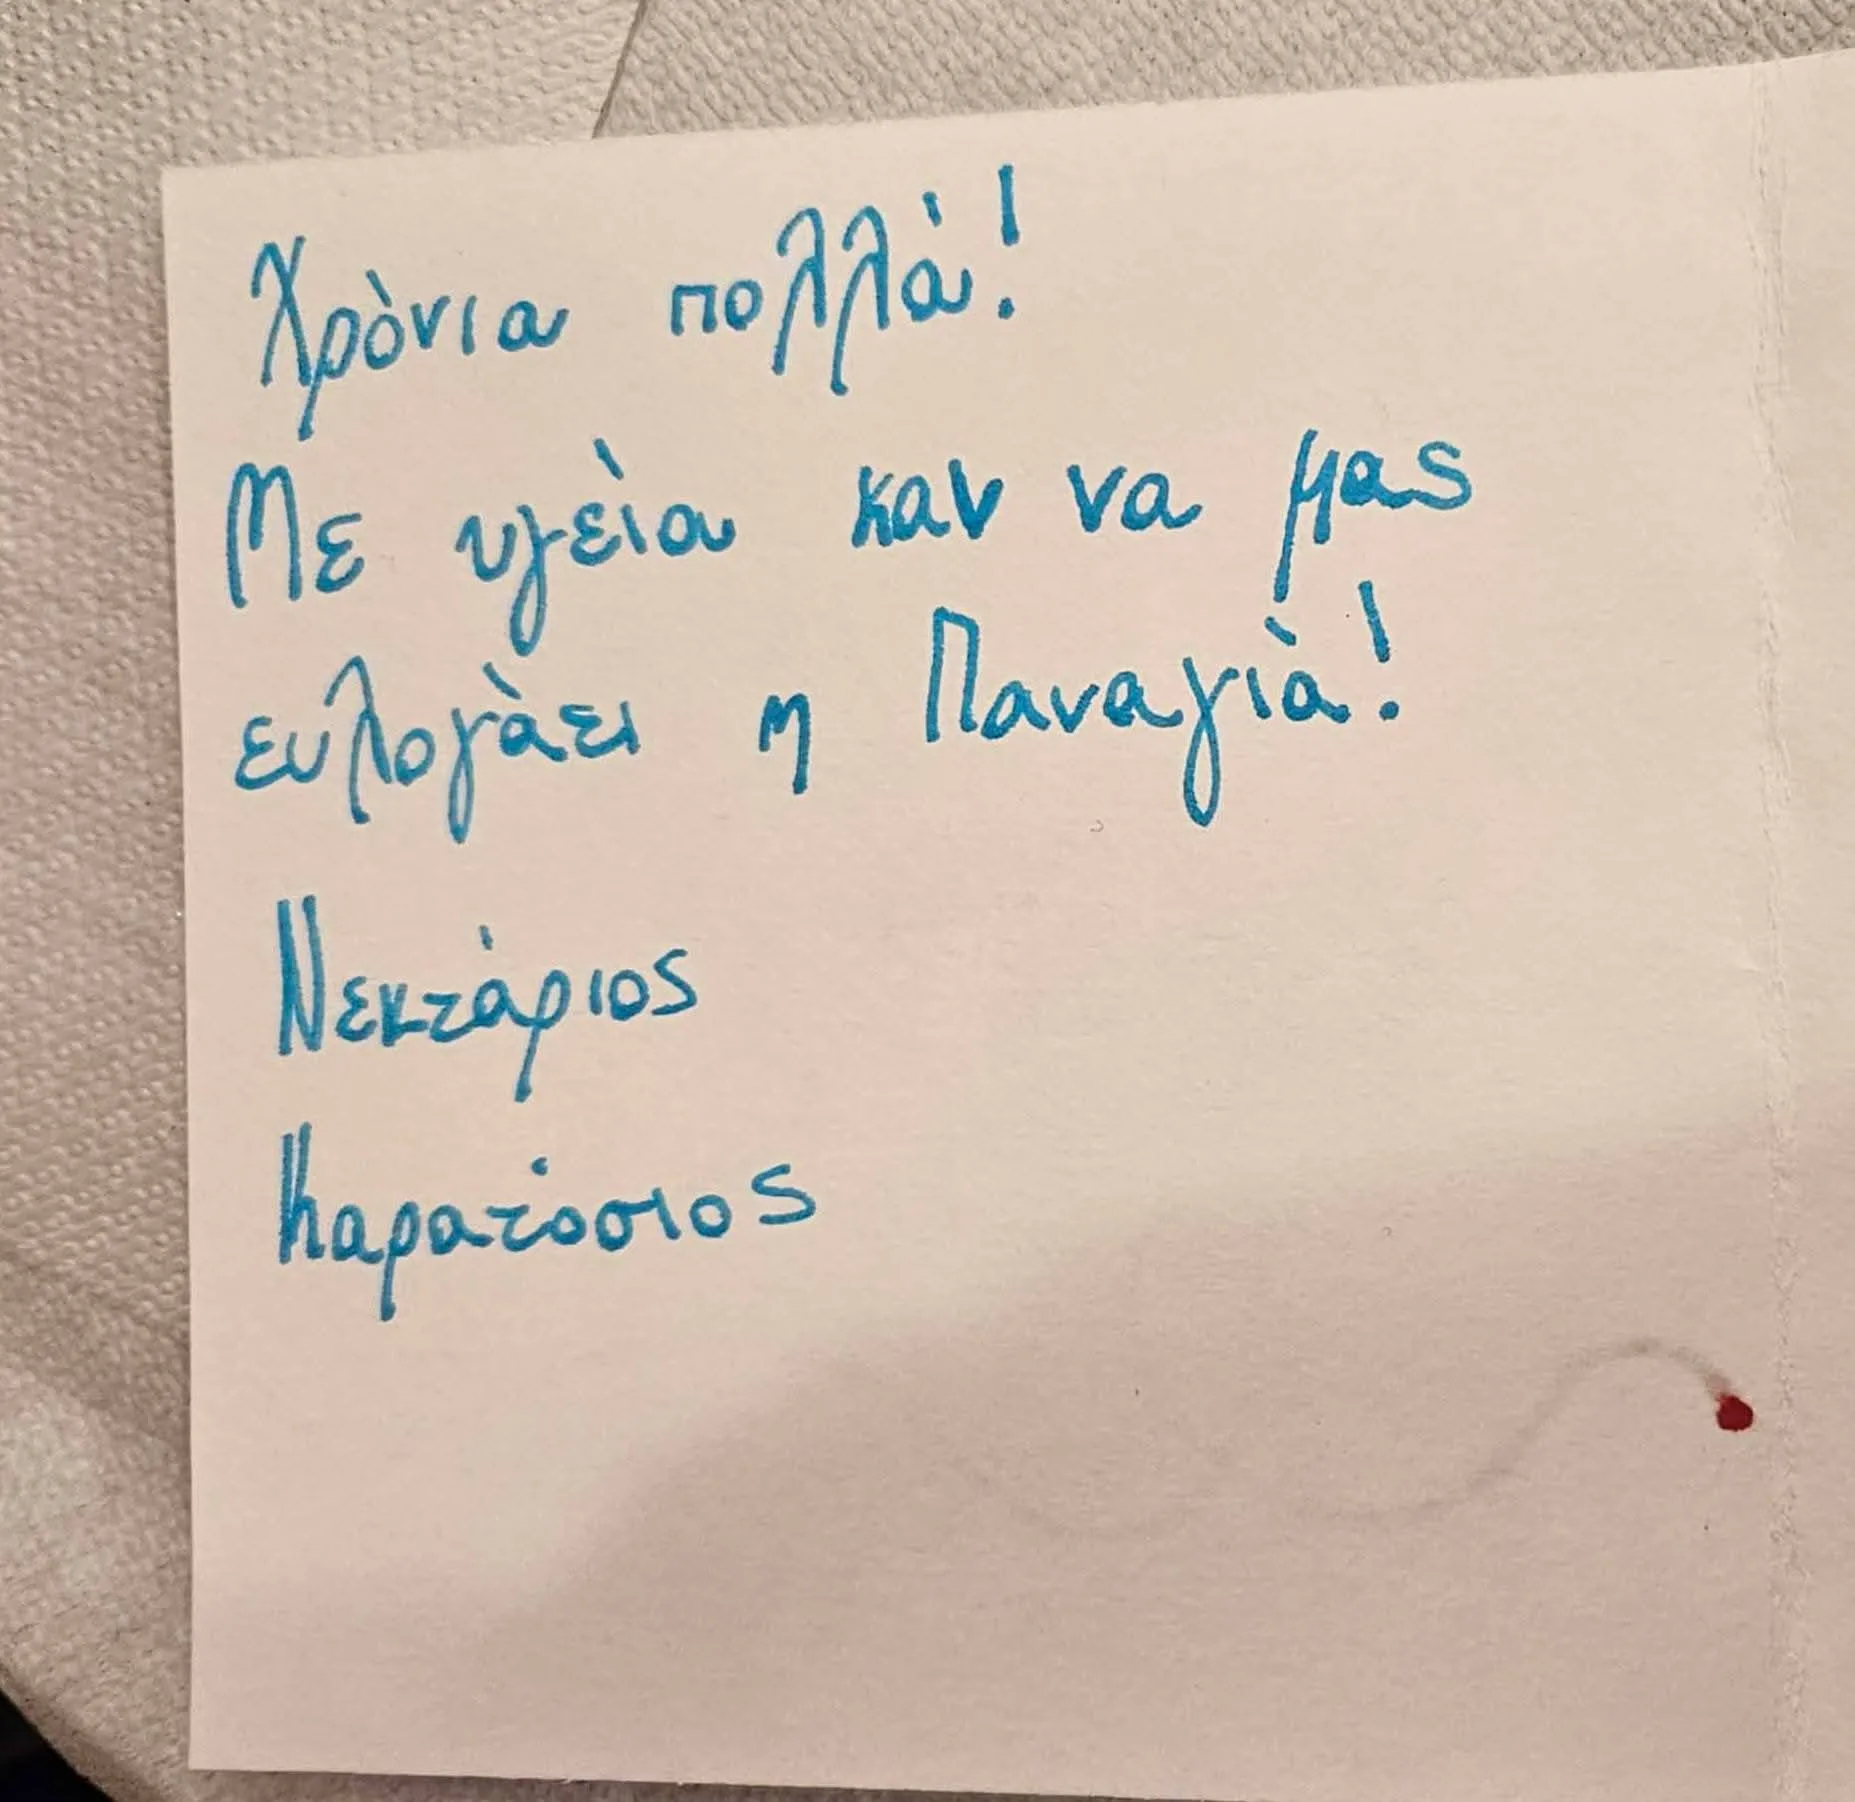 Χρόνια πολλά!
Με υγεία καν να μας
ευλογάει η Παναγιά!
Νεκτάριος
Καρατόσιος